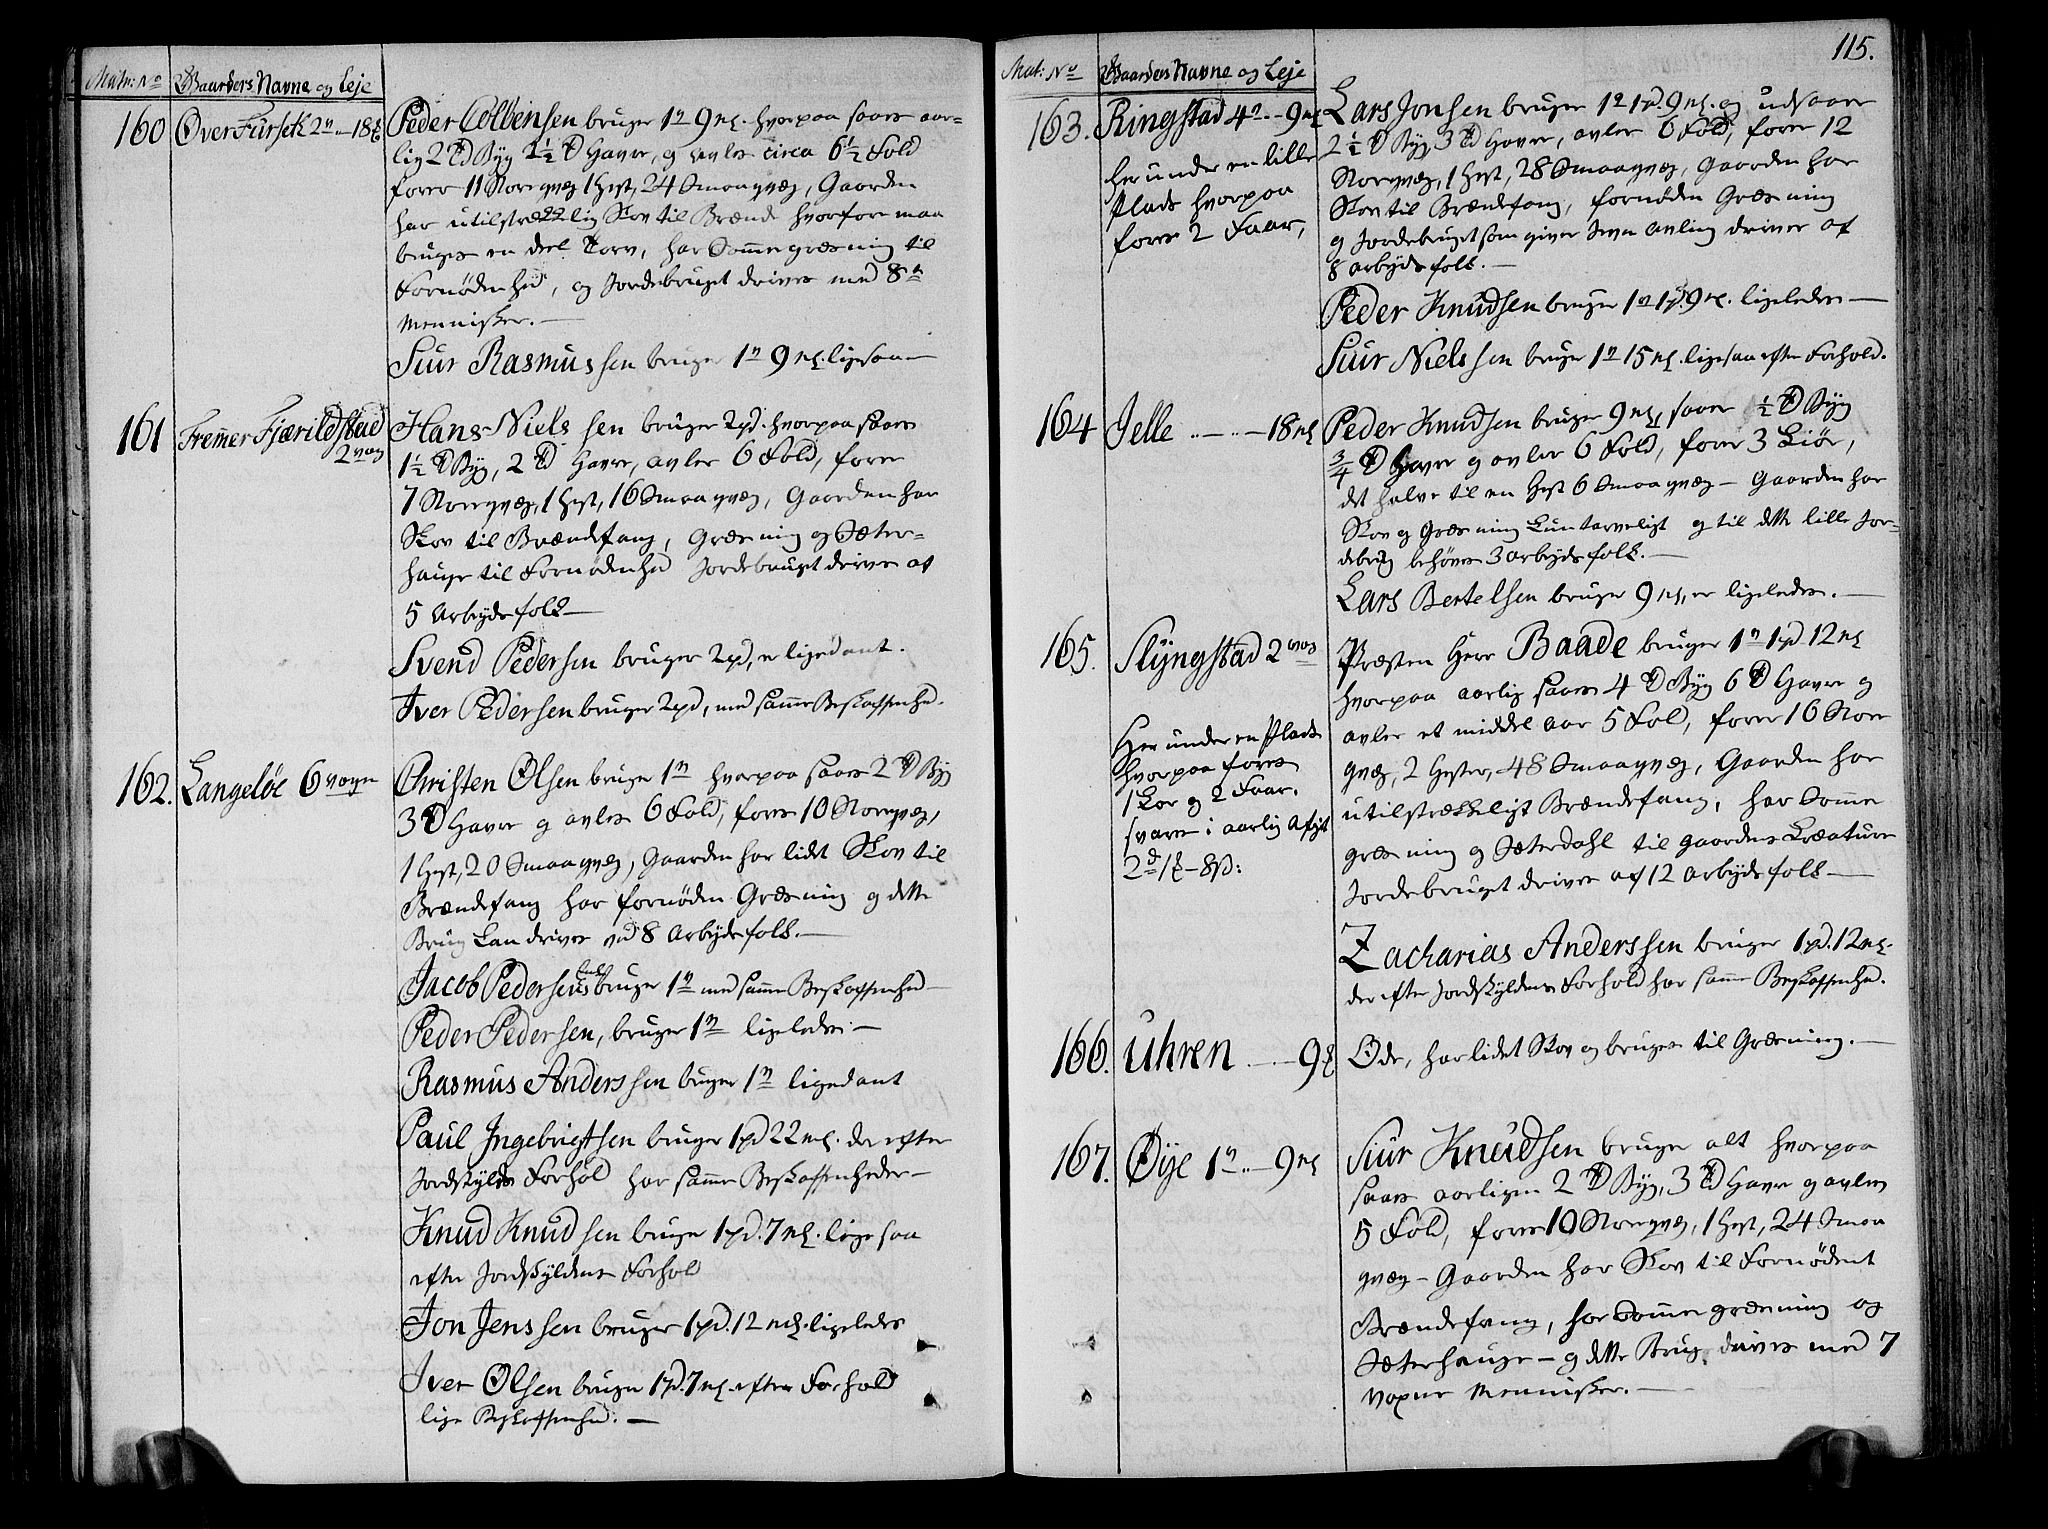 Matr: No Gaarders Navne og Leje
160 Øver Fursek 2 v .. 18 ℔
Peder Colbensen bruger 1 v 9 mk. hvorpaa saaes aar-
lig 2 Td Byg 2½ Td Havre, og avles circa 6½ Fold
fores 11 Storqvæg 1 Hest, 24 Smaaqvæg, Gaarden
har utilstrækkelig Skov til Brænde hvorfore maa
bruges en deel Torv, har Sommergræsning til
Fornødenhed, og Jordebruget drives med 8te
Mennisker. —
Siur Rasmussen bruger 1 v 9 mk. ligesaa —
161 Fremer Fjærildstad
2 vog
Hans Nielssen bruger 2 pd. hvorpaa saaes
1½ Td Byg, 2 Td Havre, avler 6 Fold, fores
7 Storeqvæg, 1 Hest, 16 Smaaqvæg, Gaarden har
Skov til Brændefang, Græsning og Sæter-
hauge til Fornødenhed Jordebruget drives af
5 Arbejdsfolk —
Svend Pedersen bruger 2 pd, er ligedant.
Iver Pedersen bruger 2 pd, med samme Beskaffenhed.
162. Langeløe 6 voger
Christen Olsen bruger 1 v hvorpaa saaes 2 Td Byg
3 Td Havre og avles 6 Fold, fores 10 Storeqvæg,
1 Hest, 20 Smaaqvæg, Gaarden har lidet Skov til
Brændefang har fornøden Græsning og dette
Brug kan drives ved 8 Arbejdsfolk. —
Jacob Pedersens Enke bruger 1 v med samme Beskaffenhed —
Peder Pedersen, bruger 1 v ligeledes —
Rasmus Anderssen bruger 1 v ligedant
Paul Ingebrigtsen bruger 1 pd 22 mk. der efter
Jordskylds Forhold har samme Beskaffenheder —
Knud Knudsen bruger 1 pd. 7 mk. lige saa
efter Jordskyldens Forhold
Jon Jenssen bruger 1 pd. 12 mk. ligeledes
Iver Olsen bruger 1 pd. 7 mk efter Forhold
lige Beskaffenhed. —
115.
Mat: No Gaarders Navne og Leje
163. Ringstad 4 v .. 9 mk
her under en lille
Plads hvorpaa
fores 2 Faar,
Lars Jonsen bruger 1 v 1 pd. 9 mk. og udsaaer
2½ Td Byg 3 Td Havre, avler 6 Fold, forer 12
Storeqvæg, 1 Hest, 28 Smaaqvæg, Gaarden har
Skov til Brændefang, fornøden Græsning
og Jordebruget som giver Jevn avling drives af
8 arbejdsfolk. —
Peder Knudsen bruger 1 v 1 pd. 9 mk. ligeledes —
Siur Nielssen bruger 1 v 15 mk. ligesaa efter Forhold.
164 Jelle .. — .. — 18 mk
Peder Knudsen bruger 9 mk, saaer ½ Td Byg
¾ Td Havre og avler 6 Fold, forer 3 Kiør,
det halve til en Hest 6 Smaaqvæg — Gaarden har
Skov og Græsning kuntarveligt og til dette lille Jor-
debrug behøves 3 arbejdsfolk. —
Lars Bertelsen bruger 9 mk, er ligeledes. —
165. Slÿngstad 2 vog
Her under en Plads
hvorpaa fores
1 Koe og 2 Faar.
svarer i aarlig Afgt
2 d 1 ℔ - 8 s:
Præsten Herr Baade bruger 1 v 1 pd 12 mk
hvorpaa aarlig saaes 4 Td Byg 6 Td Havre og
avler et middel aar 5 Fold, forer 16 Stor
qvæg, 2 Hester, 48 Smaaqvæg, Gaarden har
utilstrækkeligt Brændefang, har Somme
græsning og Sæterdahl til gaardens Kræature
Jordebruget drives af 12 arbejdsfolk —
Zacharias Anderssen bruger 1 pd. 12 mk.
der efter Jordskyldens Forhold har samme Beskaffenhed.
166. Uhren .. — 9 ℔
Øde, har lidet Skov og bruges til Græsning. —
167. Øije 1 v .. — 9 mk
Siur Knudsen bruger alt hvorpaa
saaes aarligen 2 Td Byg, 3 Td Havre og avles
5 Fold, forer 10 Storeqvæg, 1 Hest, 24 Smaa
qvæg — Gaarden har Skov til Fornødent
Brændefang, har Sommergræsning og
Sæterhauge — og dette Brug drives med 7
voxne Mennisker. —